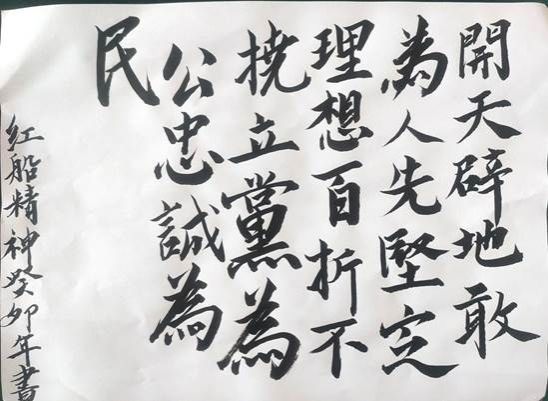 開天辟地敢
為人先堅定
理想百折不
撓立黨為
公忠誠為
民
红船精神癸卯年書